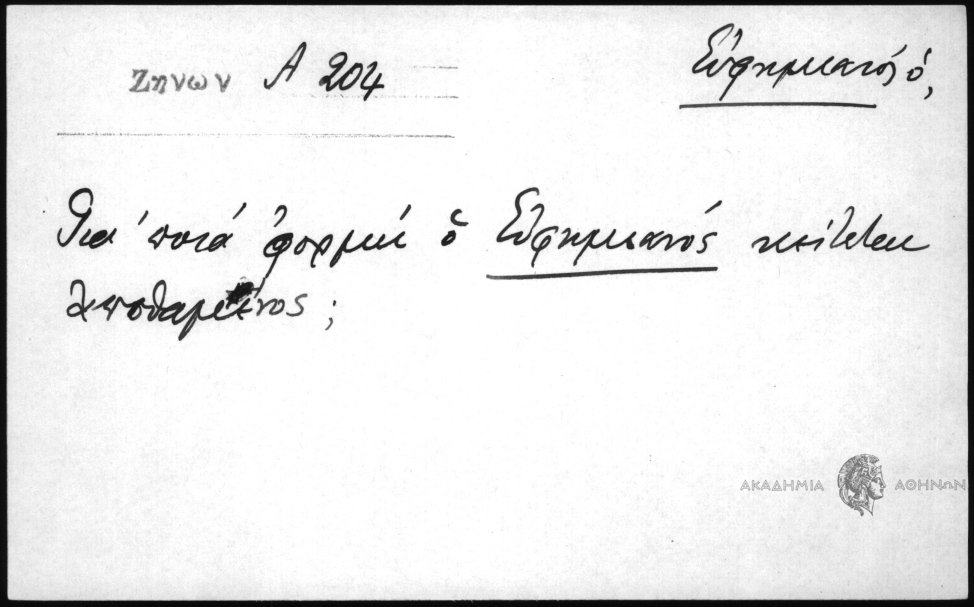 Ζηνων Α 204
Εὐφημιανός ὁ,
Για ποιά ἀφορμή ὁ Εὐφημιανός κείτεται
ἀποθαμένος;
ΑΚΑΔΗΜΙΑ ΑΘΗΝΩΝ